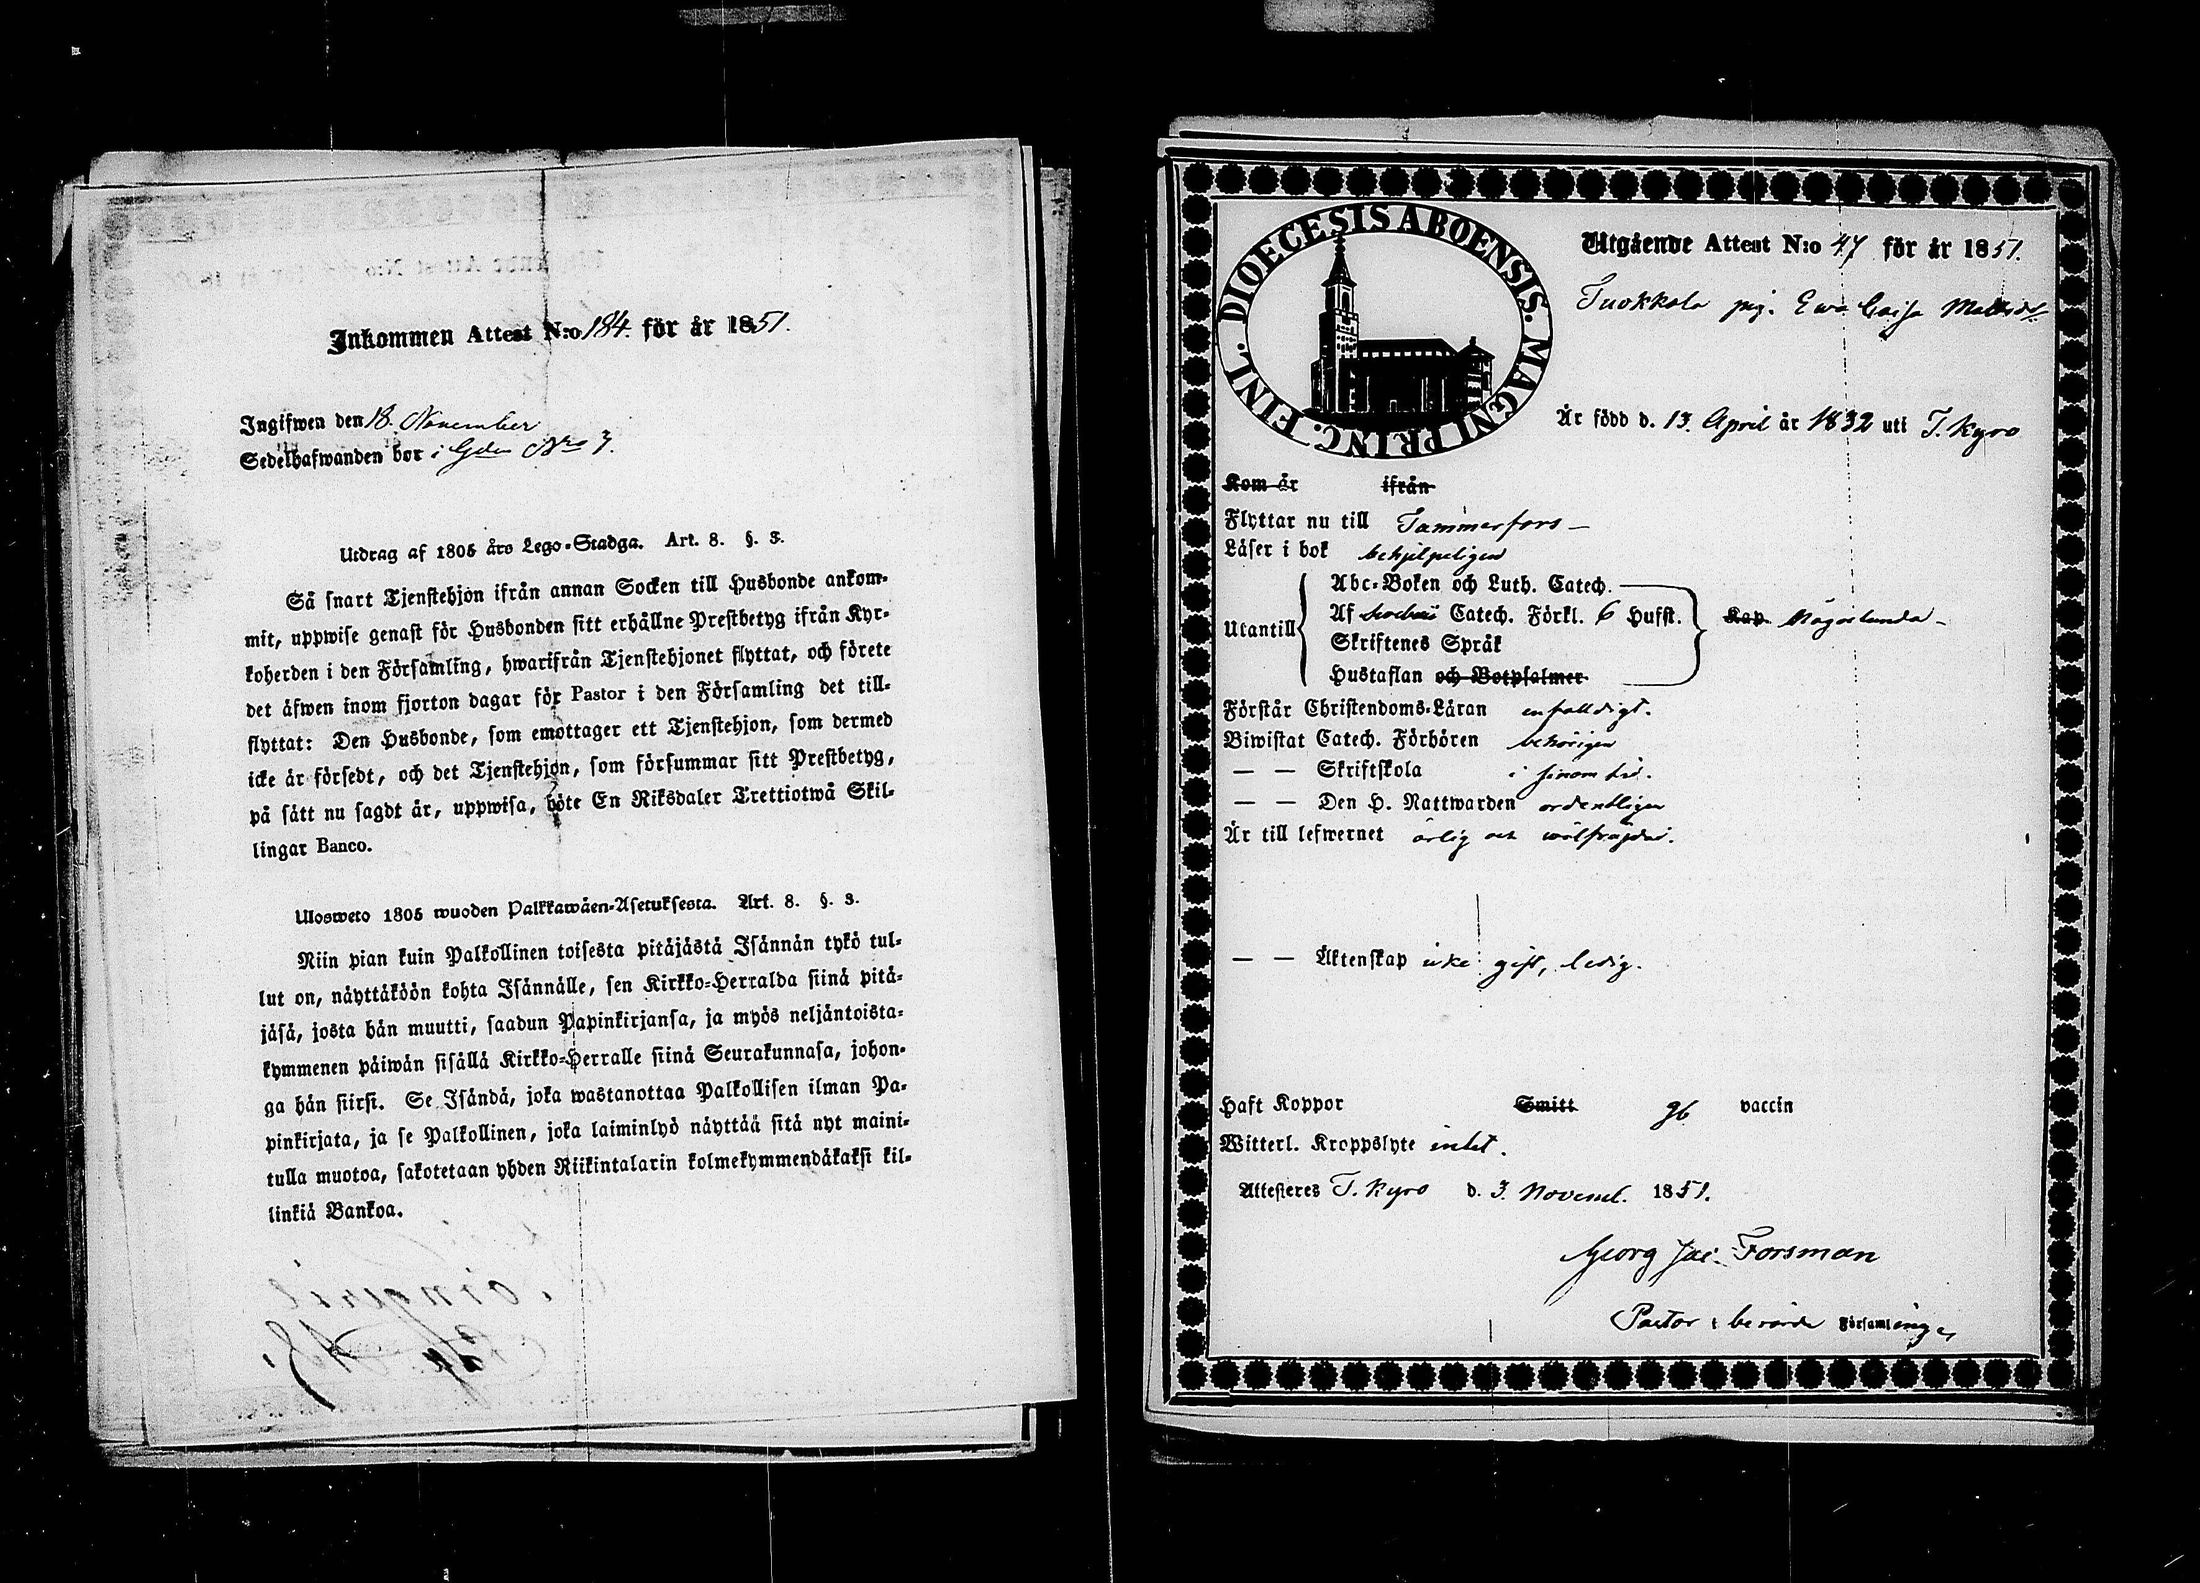 Inkommen Attest N:o 184 för år 1851.
Ingifwen den 18. November
Sedelhafwanden bor i Gden Nro 7.
Utdrag af 1805 års Lego-Stadga. Art. 8. §. 3.
Så snart Tjenstehjon ifrån annan Socken till Husbonde ankom-
mit, uppwise genast för Husbonden sitt erhållne Prestbetyg ifrån Kyr-
koherden i den Församling, hwarifrån Tjenstehjonet flyttat, och förete
det äfwen inom fjorton dagar för Pastor i den Församling det till-
flyttat: Den Husbonde, som emottager ett Tjenstehjon, som dermed
icke är försedt, och det Tjenstehjon, som försummar sitt Prestbetyg,
på sätt nu sagdt är, uppwisa, böte En Riksdaler Trettiotwå Skil-
lingar Banco.
Ulosweto 1805 wuoden Palkkawäen-Asetuksesta. Art. 8. §. 3.
Niin pian kuin Palkollinen toisesta pitäjästä Isännän tykö tul-
lut on, näyttäköön kohta Isännälle, sen Kirkko-Herralda siinä pitä-
jäsä, josta hän muutti, saadun Papinkirjansa, ja myös neljäntoista-
kymmenen päiwän sisällä Kirkko-Herralle siinä Seurakunnasa, johon-
ga hän siirsi. Se Isändä, joka wastanottaa Palkollisen ilman Pa-
pinkirjata, ja se Palkollinen, joka laiminlyö näyttää sitä nyt maini-
tulla muotoa, sakotetaan yhden Riikintalarin kolmekymmendäkaksi kil-
linkiä Bankoa.
DIOECESIS ABOENSIS. MAGNI PRINC. FINL.
Utgående Attest N:o 47 för år 1851.
Tuokkola pig. Ewa Caisa Mattsdr
Är född d. 13. April år 1832 uti T. Kyro
Kom år ifrån
Flyttar nu till Tammerfors –
Läser i bok behjelpeligen
Utantill
Abc-Boken och Luth. Catech.
Af Catech. Förkl. 6 Hufst.
Skriftenes Språk
Hustaflan och Botpsalmer
Kap. någorlunda –
Förstår Christendoms-Läran enfaldigt.
Biwistat Catech. Förhören behörigen
— — Skriftskola i sinom tid.
— — Den H. Nattwarden ordentligen
Är till lefwernet ärlig och wälfrägdad.
— — Äktenskap icke gift, ledig.
Haft Koppor Smitt gb vaccin
Witterl. Kroppslyte intet.
Attesteres T. Kyro d. 3. Novemb. 1851.
Georg Jac. Forsman
Pastor i berörde Församling